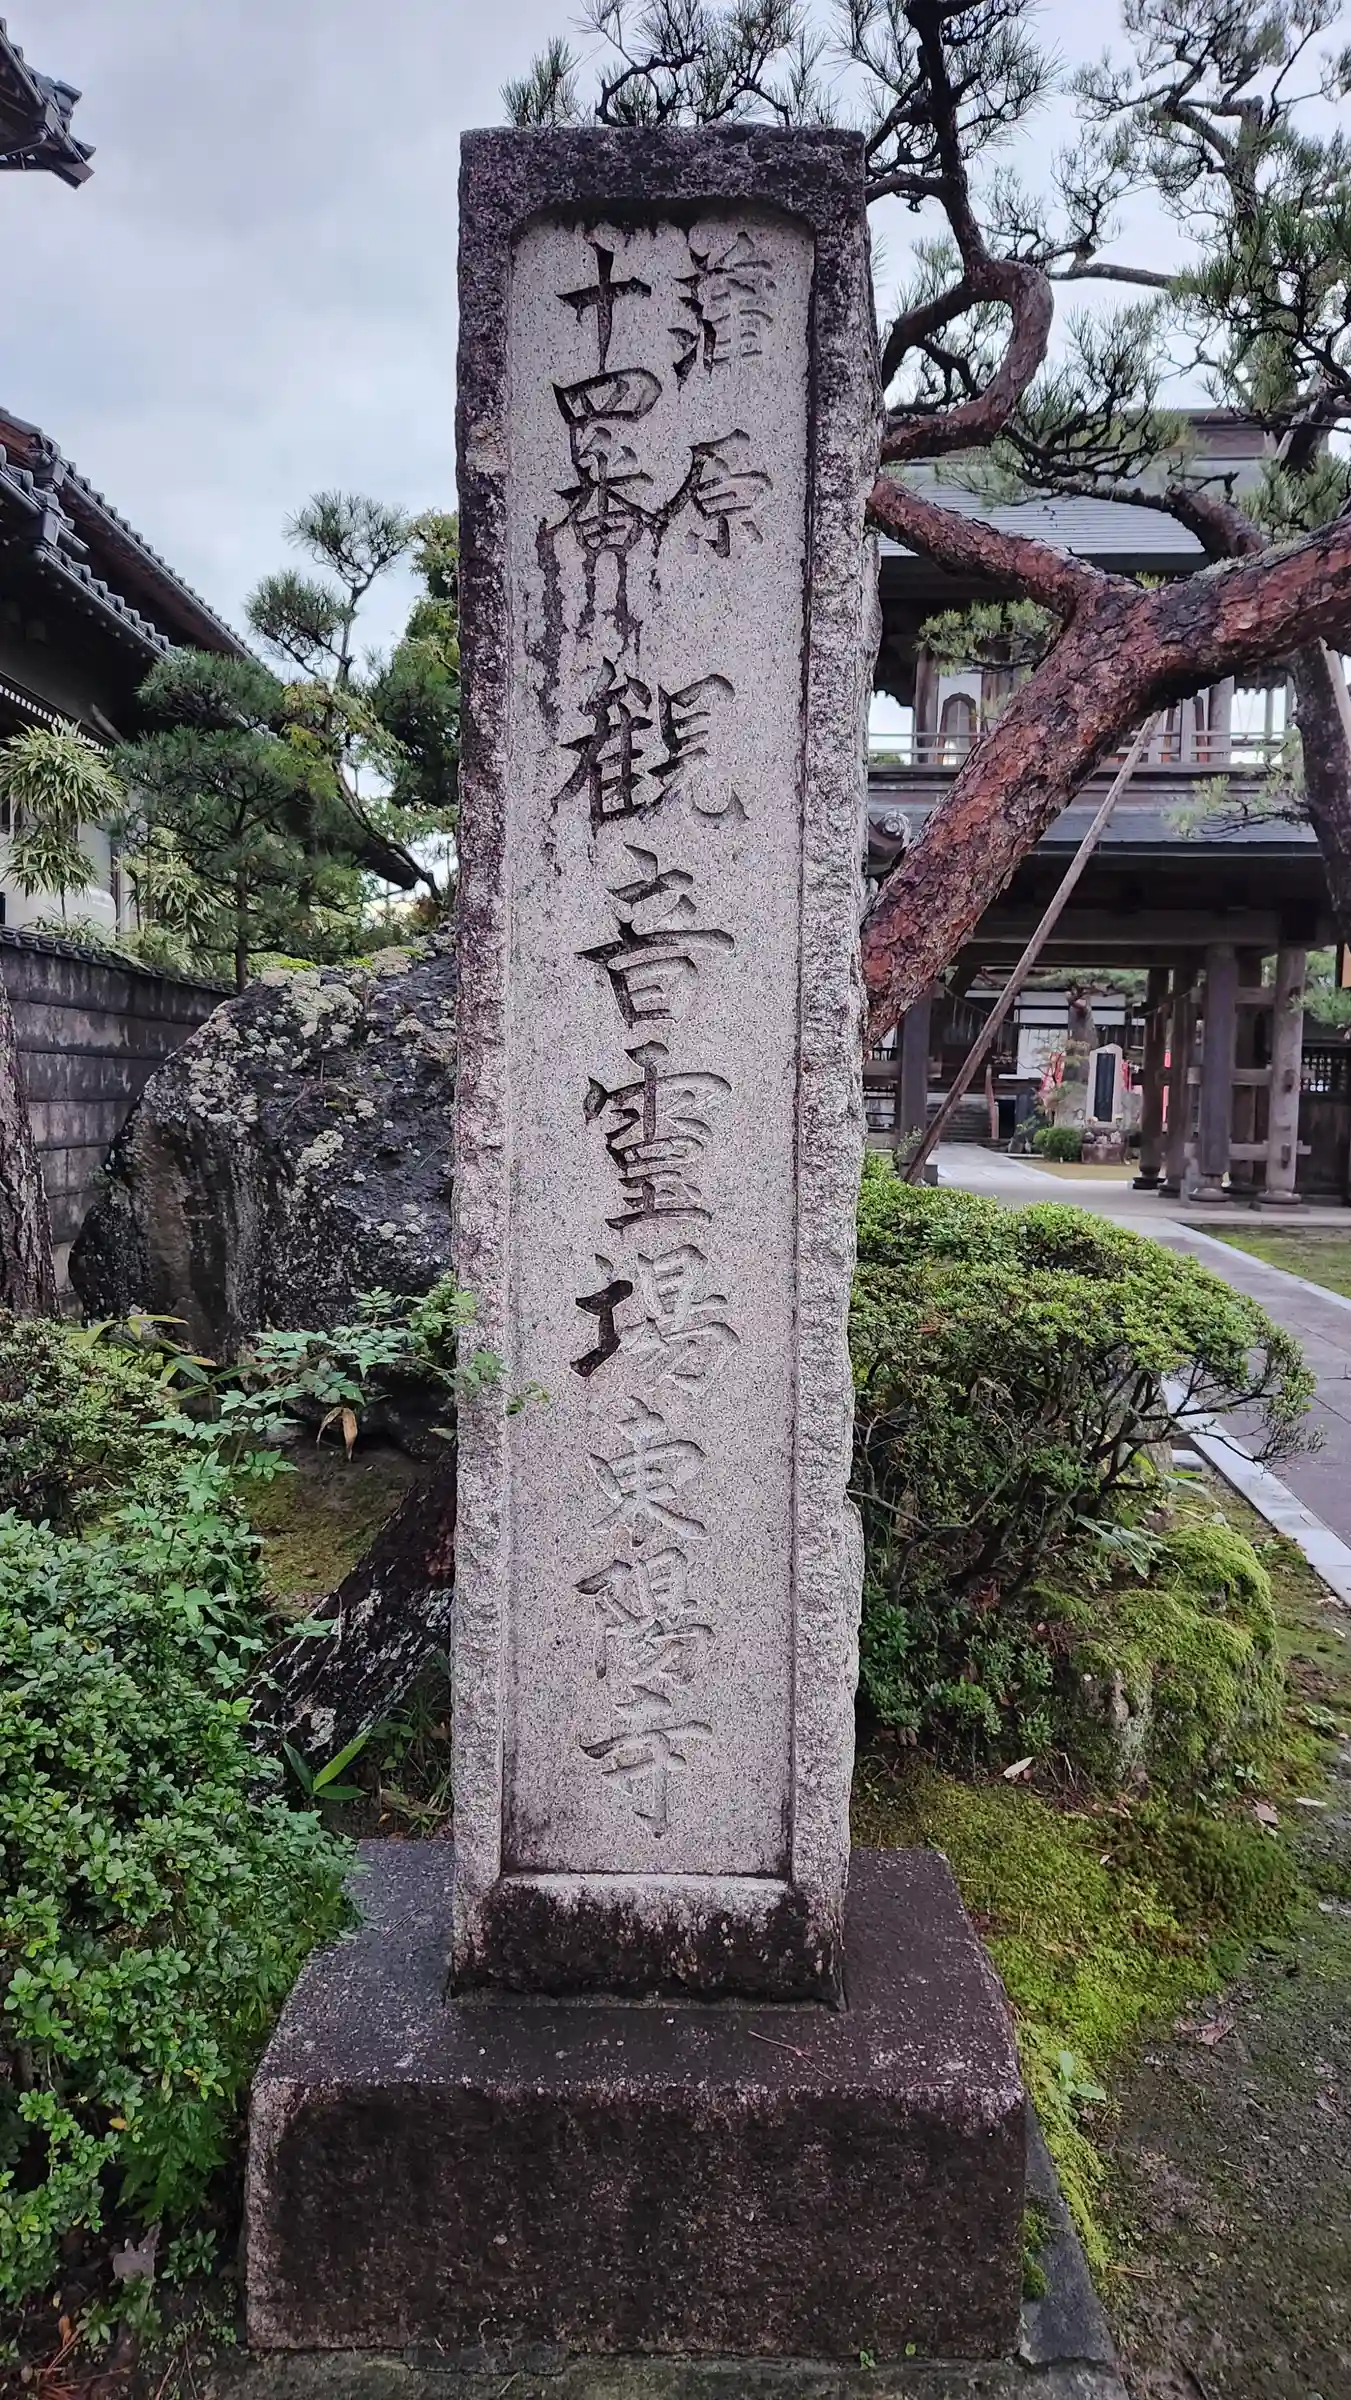 蒲原
十四番
観音霊場東陽寺